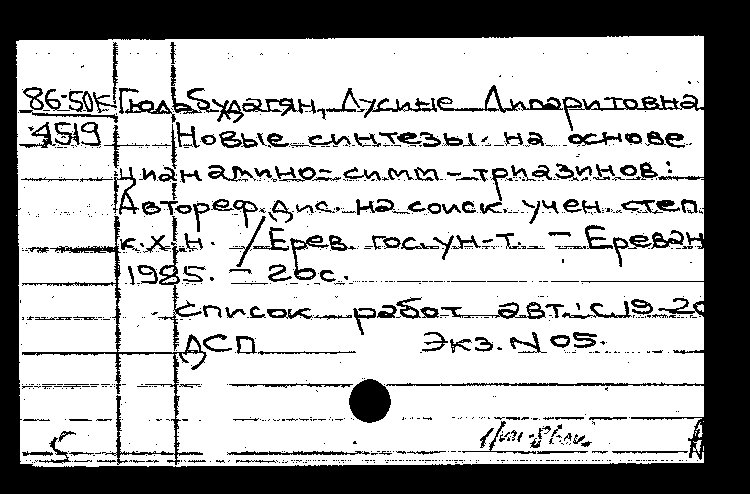 86-50к Гюльбудагян, Лусине Липаритовна
4519 Новые синтезы на основе
цианамино-симм-триазинов:
Автореф. дис. на соиск. учен. степ
к.х.н. / Ерев. гос. ун-т. - Ереван
1985. - 20с.
Список работ авт.: с. 19-20
ДСП Экз. N 05.
5